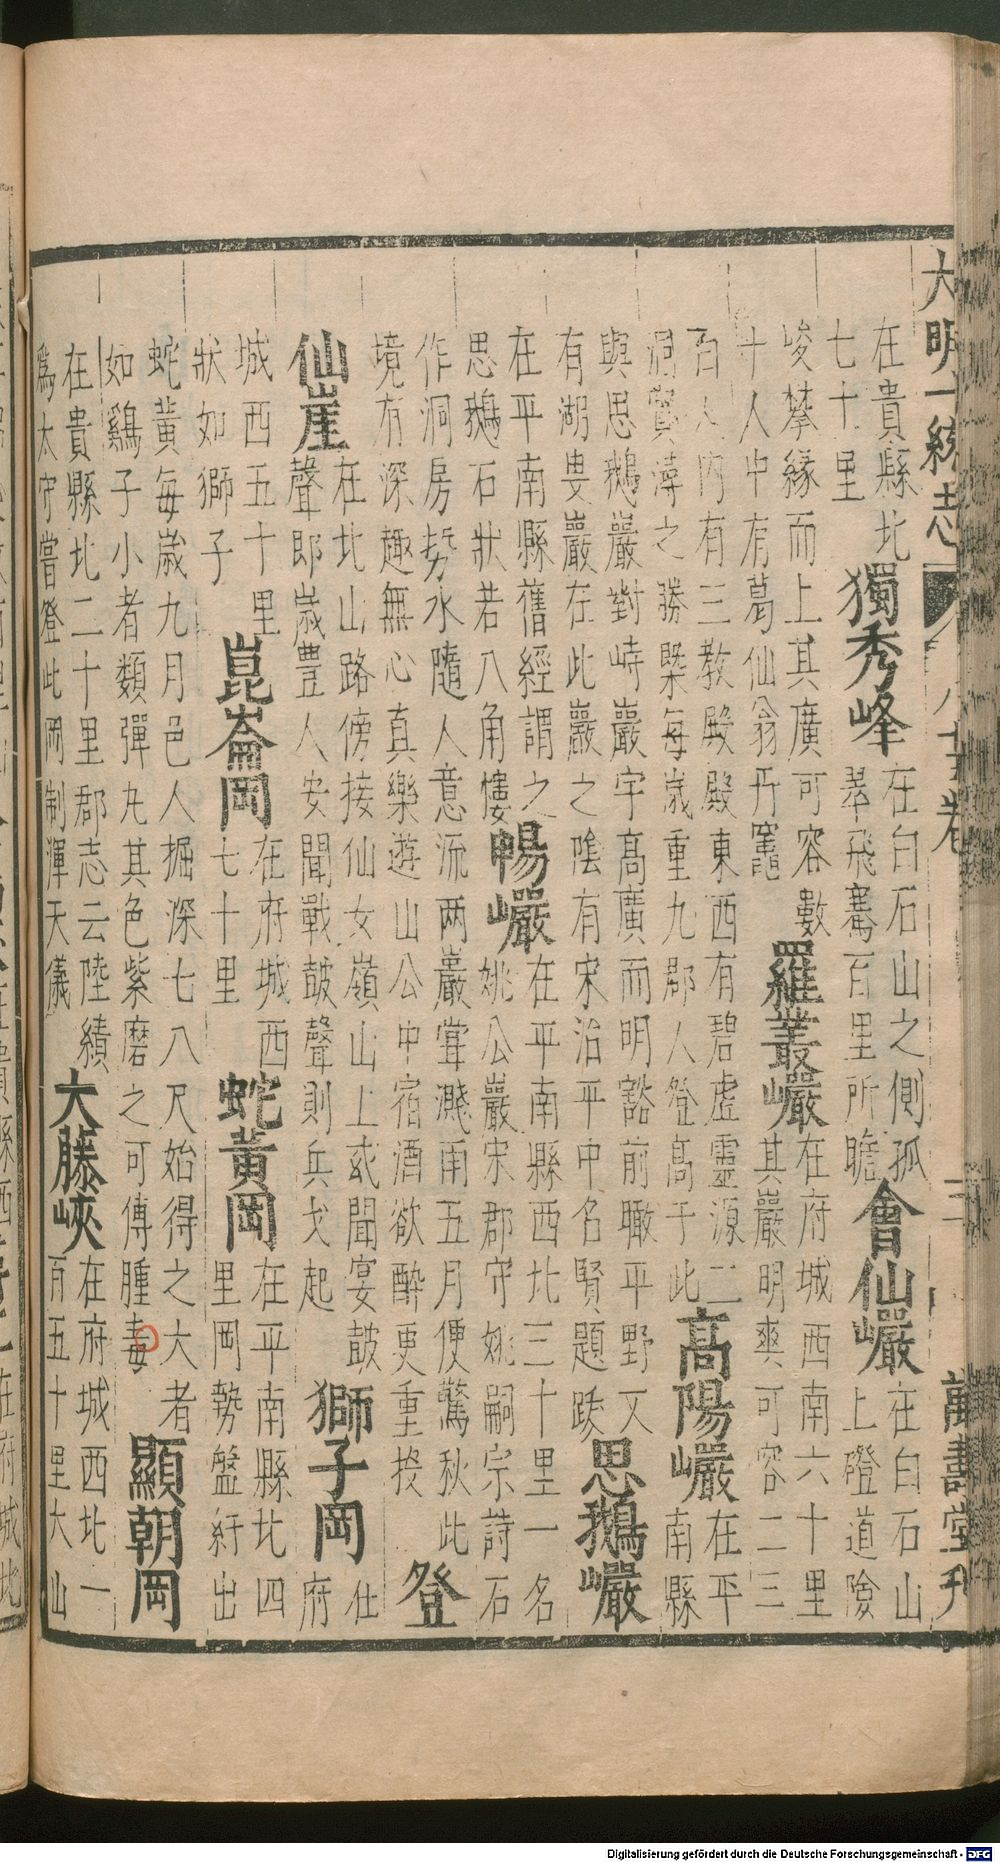 大明一統志 八十五卷 三 萬壽堂刊
在貴縣北
七十里
獨秀峰
在白石山之側孤
峯飛騫百里所瞻
會仙巖
在白石山
上磴道險
峻攀緣而上其廣可容數
十人中有葛仙翁丹竈
羅叢巖
在府城西南六十里
其巖明爽可容二三
百人內有三教殿殿東西有碧虛靈源二
洞實潯之勝槩每歲重九郡人登高于此
高陽巖
在平
南縣
與思鵝巖對峙巖宇高廣而明豁前瞰平野又
有湖畏巖在此巖之陰有宋治平中名賢題跋
思鵝巖
在平南縣舊經謂之
思鵝石狀若八角樓
暢巖
在平南縣西北三十里一名
姚公巖宋郡守姚嗣宗詩石
作洞房勢水隨人意流两巖聳濺南五月便驚秋此
境有深趣無心真樂遊山公中宿酒欲醉更重投
登
仙崖
在北山路傍接仙女嶺山上或聞宴鼓
聲郎歲豊人安聞戰鼓聲則兵戈起
獅子岡
仕
府
城西五十里
狀如獅子
崑崙岡
在府城西
七十里
蛇黃岡
在平南縣北四
里岡勢盤紆出
蛇黃每歲九月邑人掘深七八尺始得之大者
如鷄子小者類彈丸其色紫磨之可傅腫毒
顯朝岡
在貴縣北二十里郡志云陸績
爲太守嘗登此岡制渾天儀
大藤峽
在府城西北一
百五十里大山
Digitalisierung gefördert durch die Deutsche Forschungsgemeinschaft - DFG